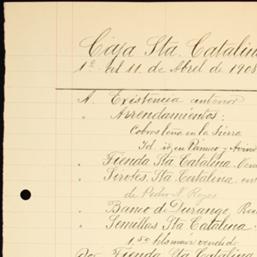 Caja Sta Catalin
1º al 11 de Abril de 1908
A. Existencia anterior
" Arrendamientos:
Cobros leña en la Sierra
Id. id en Panuco y Avino
" Tienda Sta Catalina
" Piroles, Sta Catalina, en
de Pedro N. Reyes
" Banco de Durango,
" Semillas Sta Catalina
1,50 vendido
Por Tienda Sta Catalina